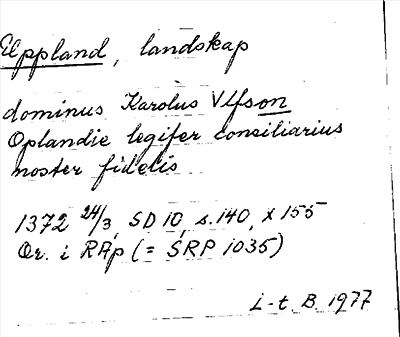 Uppland, landskap
dominus Karolus Ulfsson
Oplandie legifer consiliarius
noster fidelis
1372 24/3, SD 10, s. 140, x 155
Or. i RAp (= SRP 1035)
L-t. B. 1977